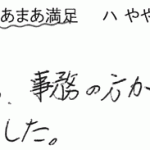 あまあ満足 ハ やや
、事務の方か
した。